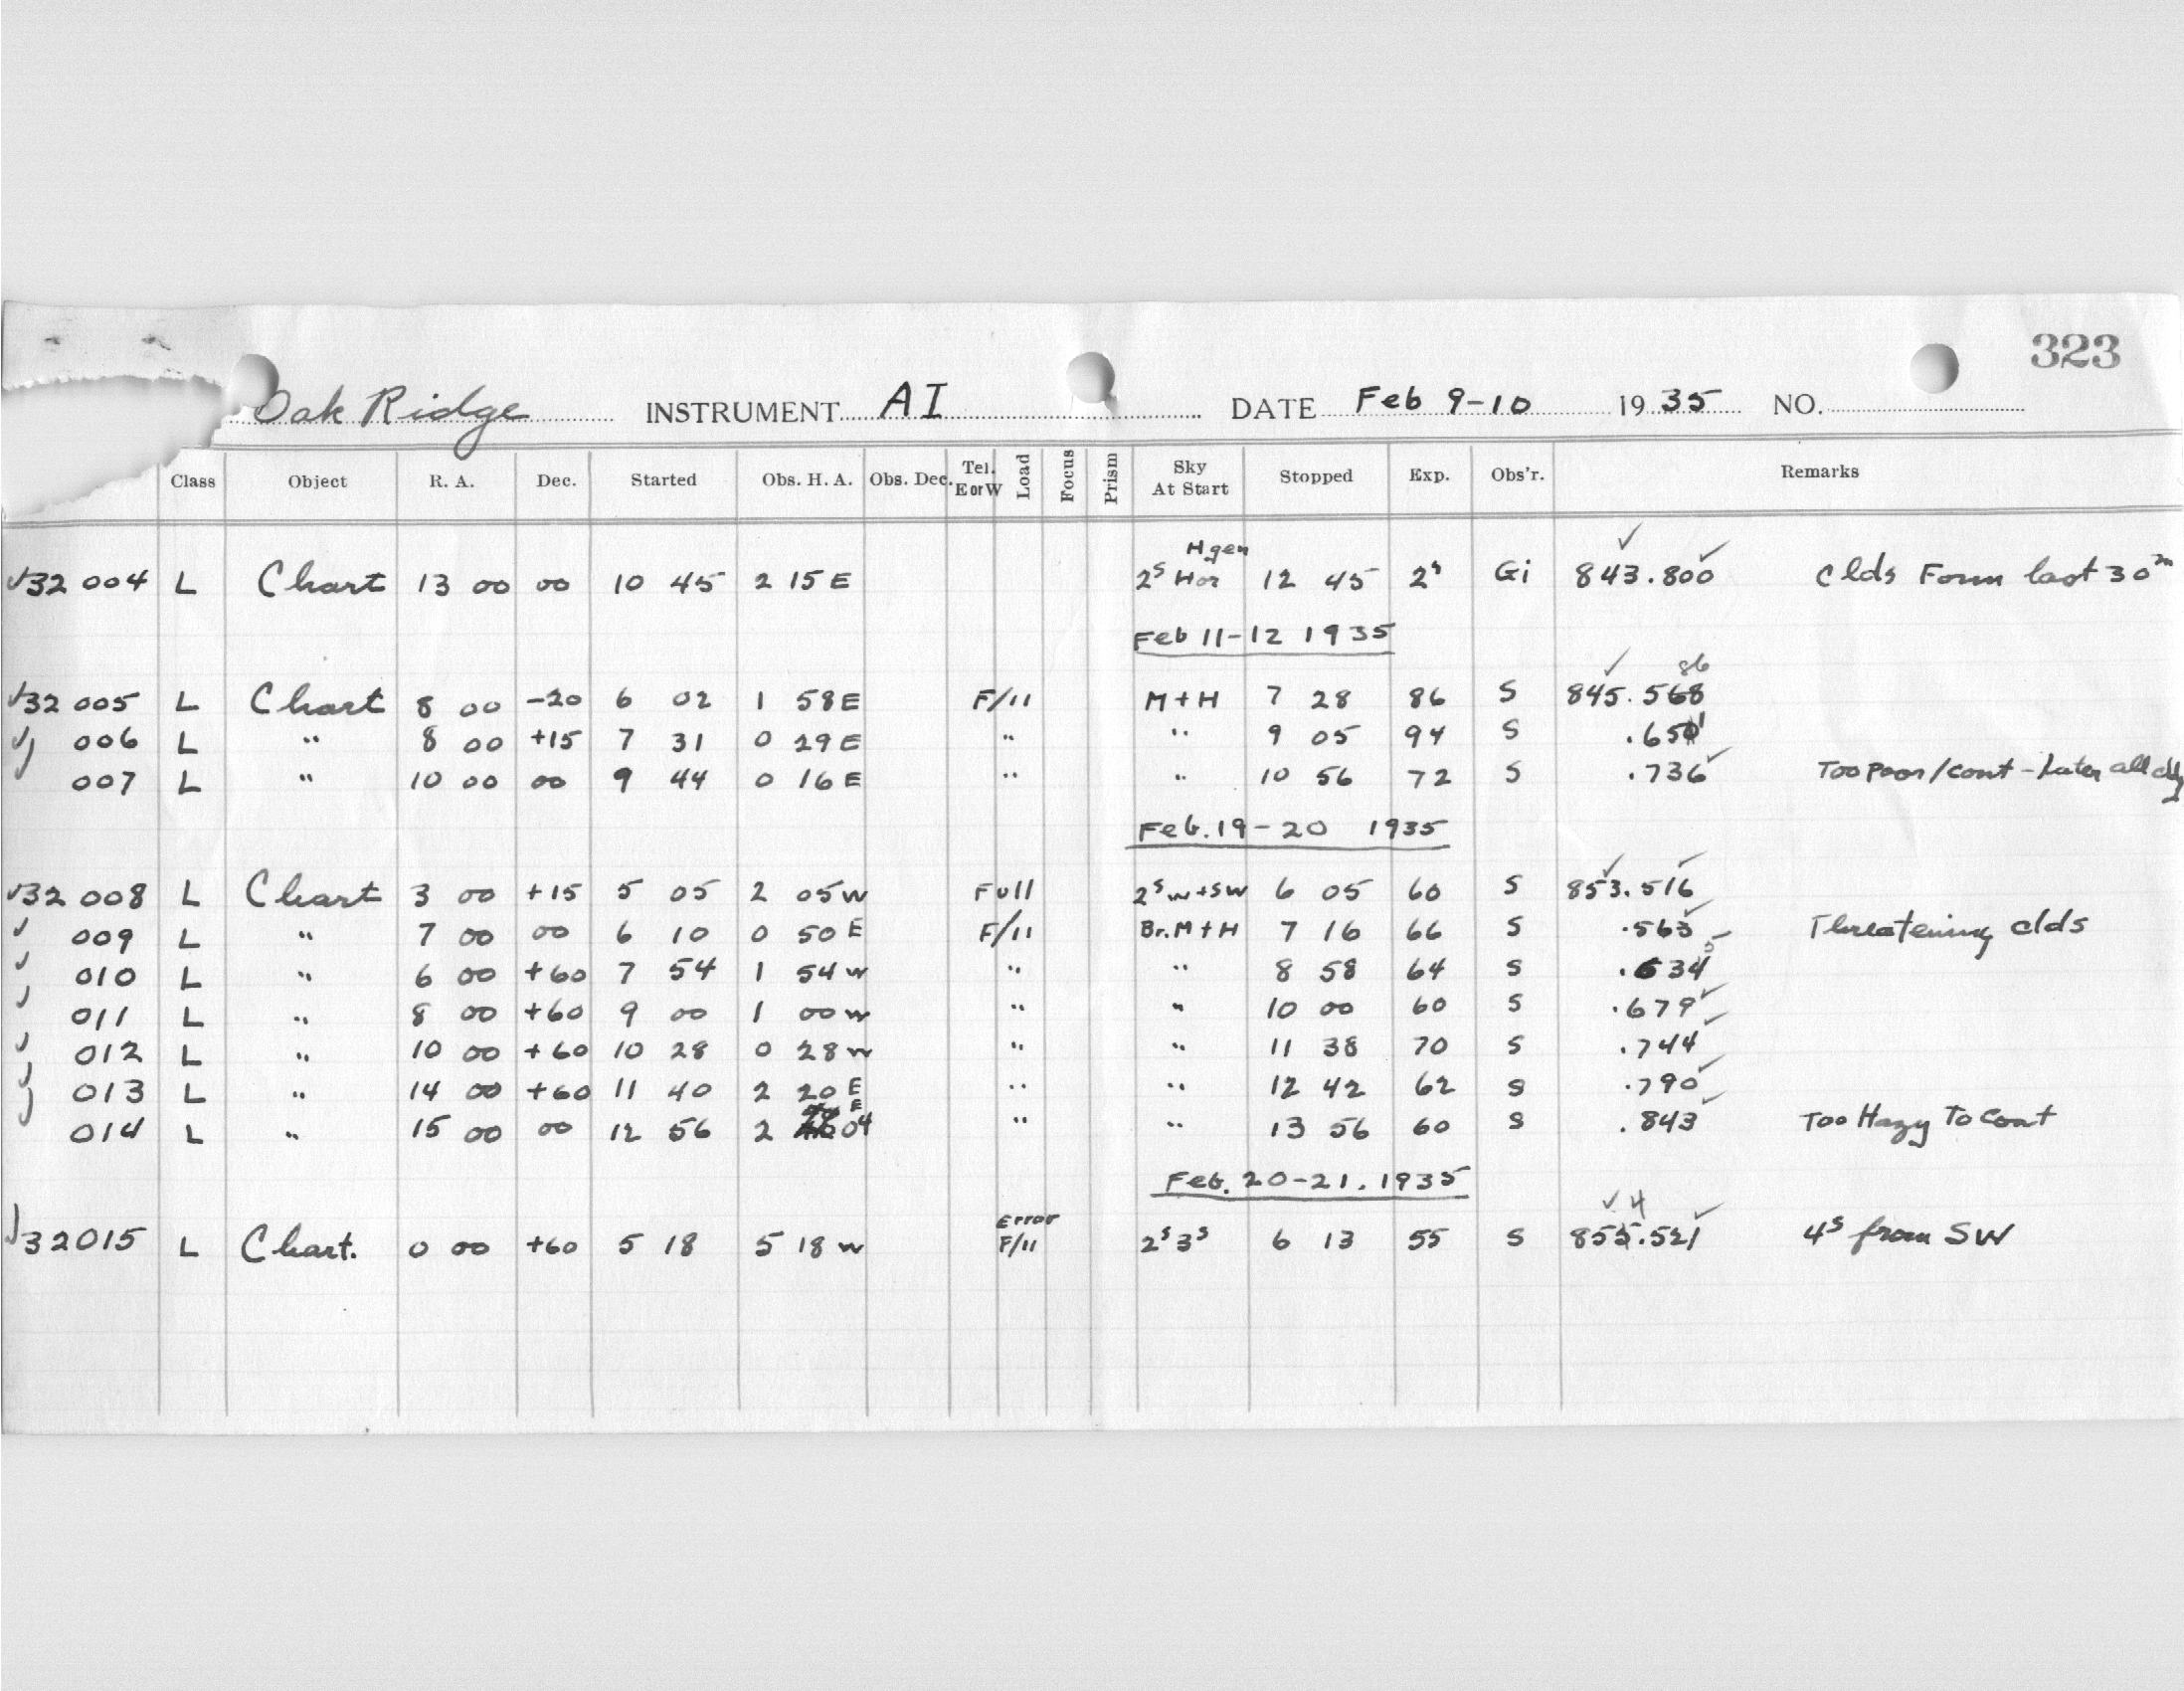 323
Oak Ridge INSTRUMENT AI DATE Feb 9-10 1935 NO.
Class Object R. A. Dec. Started Obs. H. A. Obs. Dec. Tel. E or W Load Focus Prism Sky At Start Stopped Exp. Obs'r. Remarks
H gen
✓32 004 L Chart 13 00 00 10 45 2 15 E 2ˢ Hor 12 45 2ʰ Gi 843.800 Clds Form last 30ᵐ
Feb 11-12 1935
86
✓32 005 L Chart 8 00 -20 6 02 1 58 E F/11 M + H 7 28 86 S 845.568
✓ 006 L " 8 00 +15 7 31 0 29 E " " 9 05 94 S .651
007 L " 10 00 00 9 44 0 16 E " " 10 56 72 S .736 Too Poor/cont - Later all cldy
Feb. 19-20 1935
✓32 008 L Chart 3 00 +15 5 05 2 05 W Full 2ˢ W + SW 6 05 60 S 853.516
✓ 009 L " 7 00 00 6 10 0 50 E F/11 Br. M + H 7 16 66 S .563 Threatening clds
✓ 010 L " 6 00 +60 7 54 1 54 W " " 8 58 64 S .634
✓ 011 L " 8 00 +60 9 00 1 00 W " " 10 00 60 S .679
✓ 012 L " 10 00 +60 10 28 0 28 W " " 11 38 70 S .744
✓ 013 L " 14 00 +60 11 40 2 20 E " " 12 42 62 S .790
014 L " 15 00 00 12 56 2 04 E " " 13 56 60 S .843 Too Hazy To Cont
Feb. 20-21. 1935
Error 4
✓32015 L Chart. 0 00 +60 5 18 5 18 W F/11 2ˢ 3ˢ 6 13 55 S 855.521 4ˢ from SW